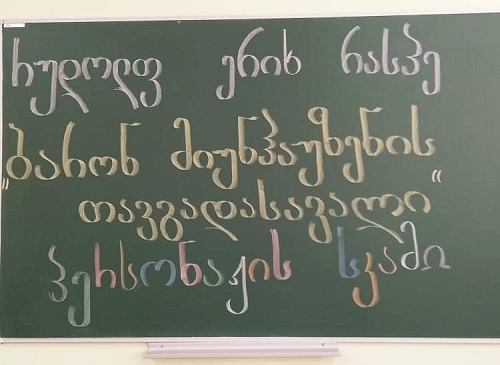 რუდოლფ ერიხ რასპე
„ბარონ მიუნჰაუზენის
თავგადასავალი“
პერსონაჟის სკამი